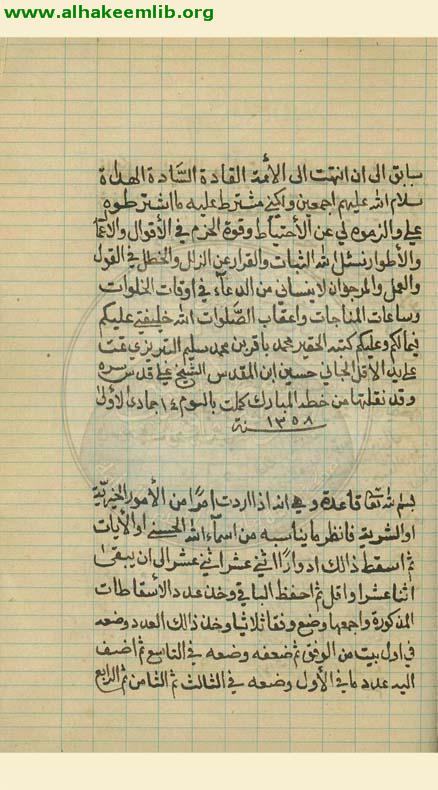 www.alhakeemlib.org
سابق الى ان انتهت الى الأئمة القادة السَّادة الهداة
سلام الله عليهم اجمعين واكني مشترط عليه ما اشترطوه
علي والزموه لي عن الأحتياط وقوة الحزم في الأقوال والاعمال
والأطوار نسئل الله الثبات والقرار عن الزلل والخطل في القول
والعمل والمرجو ان لا ينساني من الدعاء في اوقات الخلوات
وساعات المناجات واعقاب الصَّلوات الله خليفتي عليكم
فيمالكم وعليكم كتبه الحقير محمد باقر بن محمد سليم التبريزي تمت
على يد الأقل الجاني حسين ابن المقدس الشيخ علي قدس سره
وقد نقلتها من خطه المبارك كملت باليوم ١٤ جمادى الأولى
سنة ١٣٥٨
بسم الله تعالى قاعدة وهي انه اذا اردت امرًا من الأمور الخيريّة
او الشرية فانظر ما يناسبه من اسمآء الله الحسنى او الأيات
ثم اسقط ذالك ادوارًا اثنى عشر اثنى عشر الى ان يبقى
اثنا عشر او اقل ثم احفظ الباقي وخذ عدد الأسقاطات
المذكورة واجمعها وضع وفقا ثلاثيا وخذ ذالك العدد وضعه
في اول بيت من الوفق ثم ضعفه وضعه في التاسع ثم اضف
اليه عدد ما في الأول وضعه في الثالث ثم الثامن ثم الرابع